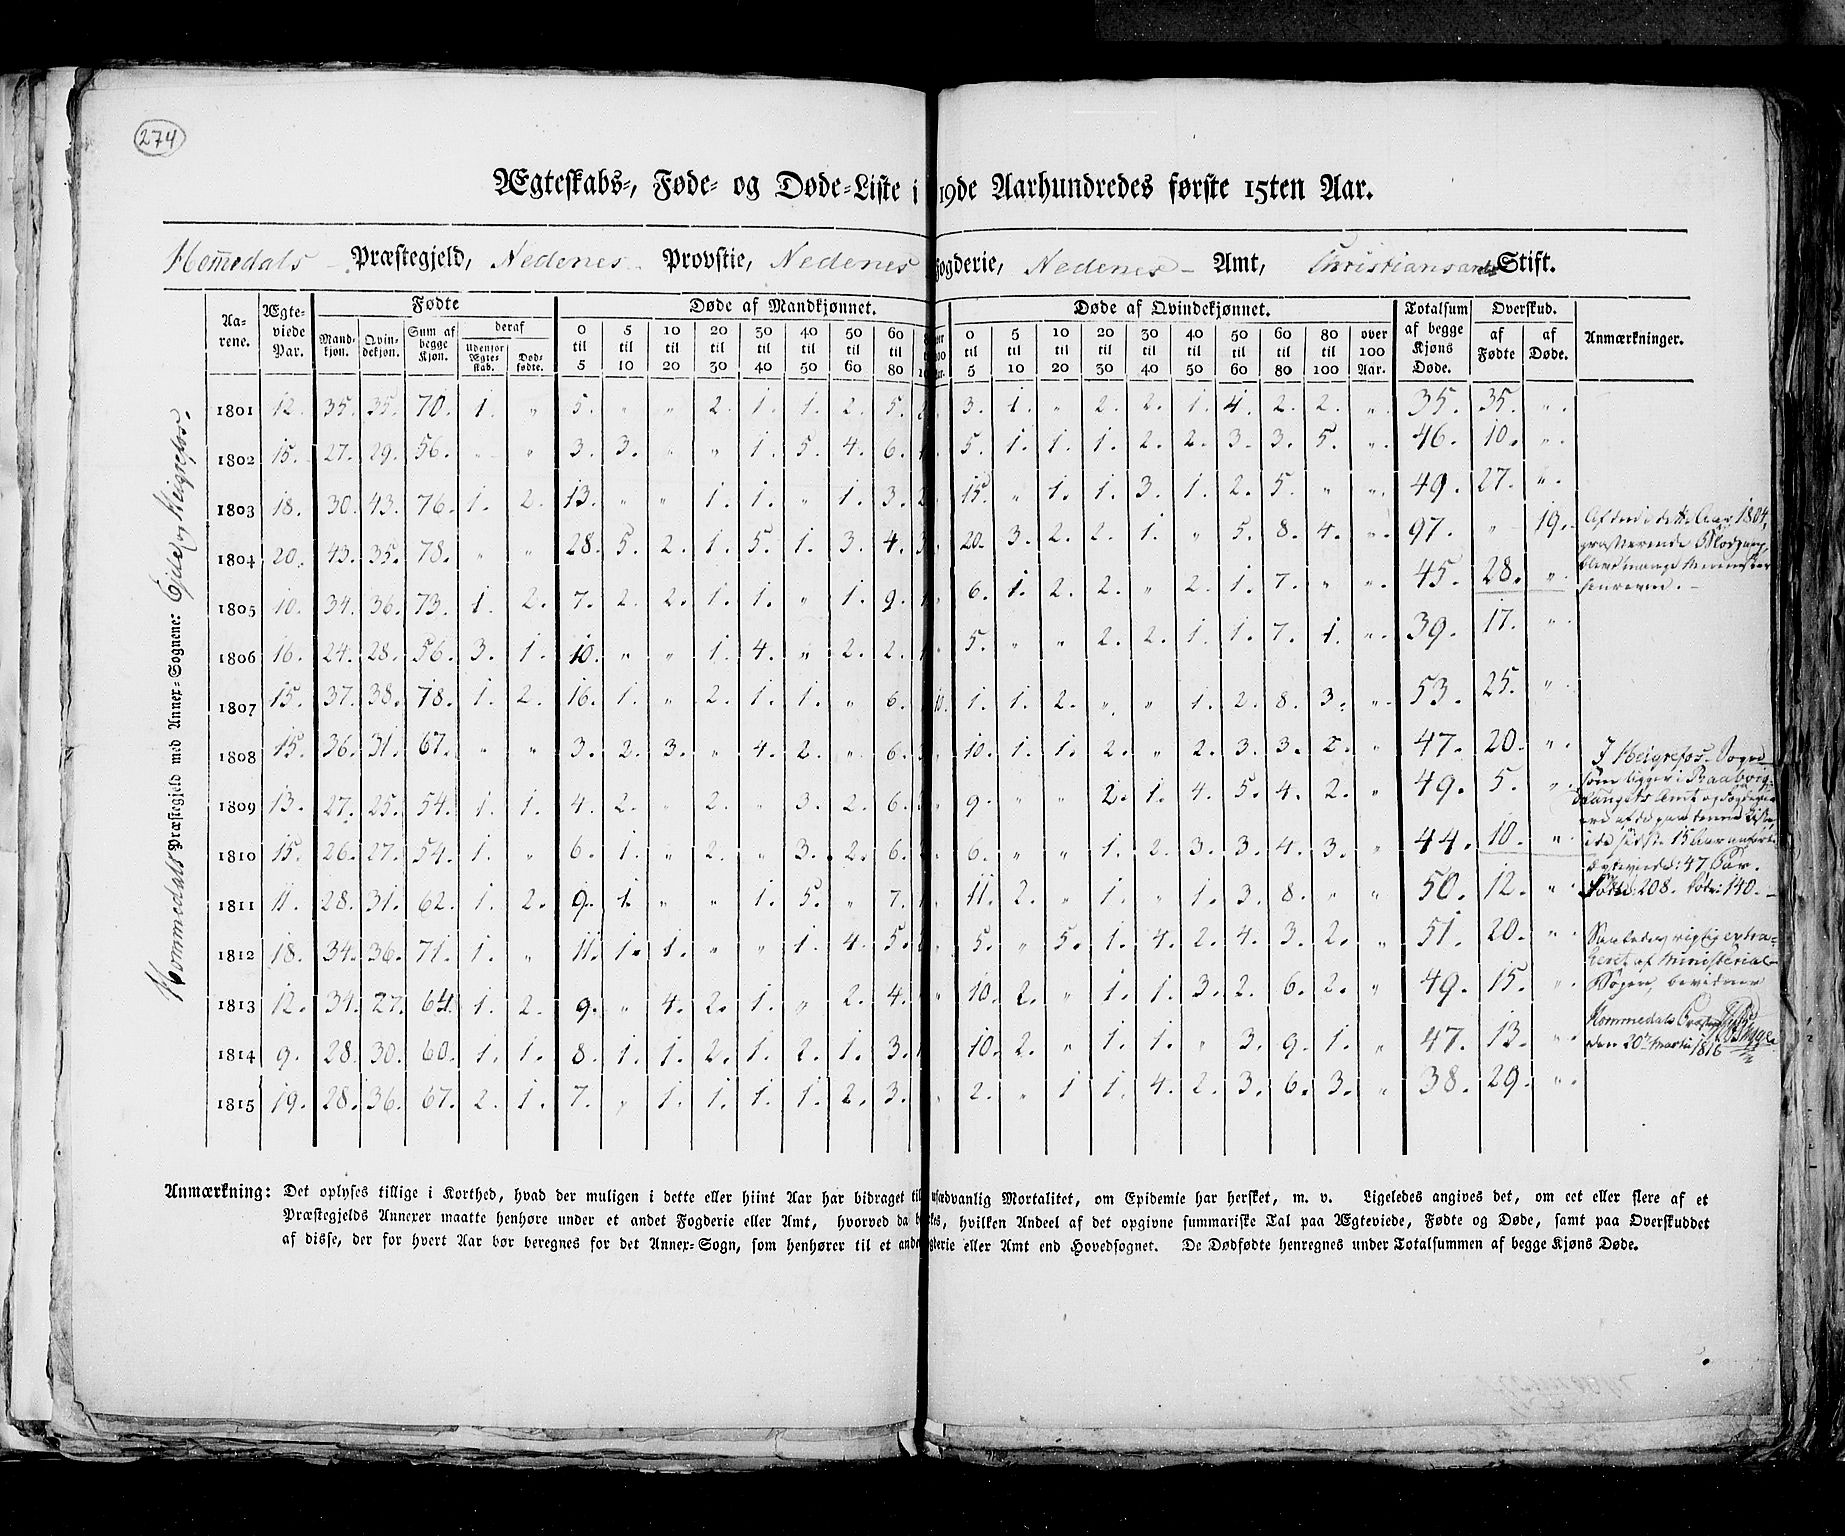 274
Ægteskabs-, Føde- og Døde-Liste i 19de Aarhundredes første 15ten Aar.
Hom̅edals Præstegjeld, Nedenes Provstie, Nedenes Fogderie, Nedenes Amt, Christiansands Stift.
Hommedals Præstegjeld med Annex-Sognene: Eide og Heigrefos.
Aarene. Ægteviede Par. Fødte Døde af Mandkjønnet. Døde af Qvindekjønnet. Totalsum af begge Kjøns Døde. Overskud. Anmærkninger.
Mandkjøn. Qvindekjøn. Sum af begge Kjøn. deraf udenfor Ægtestab. Dødfødte. af Fødte af Døde.
0 til 5 5 til 10 10 til 20 20 til 30 30 til 40 40 til 50 50 til 60 60 til 80 0 til 5 5 til 10 10 til 20 20 til 30 30 til 40 40 til 50 50 til 60 60 til 80 80 til 100 over 100 Aar.
1801 12. 35. 35. 70. 1. " 5. " " 2. 1. 1. 2. 5. 3. 1. " 2. 2. 1. 4. 2. 2. " 35. 35. "
1802 15. 27. 29. 56. " " 3. 3. " " 1. 5. 4. 6. 5. 1. 1. 1. 2. 2. 3. 3. 5. " 46. 10. "
1803 18. 30. 43. 76. 1. 2. 13. " " 1. 1. " 1. 3. 15. " 1. 1. 3. 1. 2. 5. " " 49. 27. "
1804 20. 43. 35. 78. " " 28. 5. 2. 1. 5. 1. 3. 4. 20. 3. 2. 2. 1. " 5. 8. 4. " 97. " 19.
1805 10. 34. 36. 73. 1. 2. 7. 2. 2. 1. 1. " 1. 9. 6. 1. 2. 2. " 2. 1. 7. " " 45. 28. "
1806 16. 24. 28. 56. 3. 1. 10. " " 1. 4. " 2. 2. 5. " " 2. 2. 1. 1. 7. 1. " 39. 17. "
1807 15. 37. 38. 78. 1. 2. 16. 1. " 2. 1. 1. " 6. 10. 1. 1. 2. " " 1. 2. 8. 3. " 53. 25. "
1808 15. 36. 31. 67. " " 3. 2. 3. " 4. 2. " 6. 10. 1. 1. 2. " 2. 3. 3. 2. " 47. 20. "
1809 13. 27. 25. 54. 1. 1. 4. 2. " 2. " 3. 2. 6. 9. " " 2. 1. 4. 5. 4. 2. " 49. 5. "
1810 15. 26. 27. 54. 1. " 6. 1. " 2. " 3. 2. 6. 6. " " 1. 2. 3. 3. 4. 3. " 44. 10. "
1811 11. 28. 31. 62. 1. 2. 9. 1. " " 1. 5. " 7. 11. 2. " 1. " 1. 3. 8. " " 50. 12. "
1812 18. 34. 36. 71. 1. " 11. 1. 1. " " 1. 4. 5. 5. " 5. 1. 4. 2. 4. 3. 2. " 51. 20. "
1813 12. 34. 27. 64. 1. 2. 9. " 4. 2. 1. " 2. 4. 10. 2. " 1. 1. 3. 2. 6. 2. " 49. 15. "
1814 9. 28. 30. 60. 1. 1. 8. 1. 1. 2. 1. 2. 1. 3. 10. 2. " 1. 1. " 3. 9. 1. " 47. 13. "
1815 19. 28. 36. 67. 2. 1. 7. " 1. 1. 1. 1. 2. 3. 2. " 1 1. 4. 2. 3. 6. 3. " 38. 29. "
Af den i dette Aar 1804,
grasserende Blodgang,
bleve mange Mennesker
henrevne.
I Heigrefos Sogn
som ligger i Raabyg-
elaugets Amt og Fogderie
ere af de paa denne Liste,
i de sidste 15 Aar anførte
Ægteviede: 47 Par.
Fødte: 208. Døde: 140.
Saaledes rigtig extra-
heret af Ministerial-
Bogen, bevidner
Hommedals
den 20de Martii 1816
Anmærkning: Det oplyses tillige i Korthed, hvad der muligen i dette eller hiint Aar har bidraget til usædvanlig Mortalitet, om Epidemie har hersket, m. v. Ligeledes angives det, om eet eller flere af et
Præstegjelds Annexer maatte henhøre under et andet Fogderie eller Amt, hvorved da hvilken Andeel af det opgivne summariske Tal paa Ægteviede, Fødte og Døde, samt paa Overskuddet
af disse, der for hvert Aar bør beregnes for det Annex-Sogn, som henhører til et andet Fogderie eller Amt end Hovedsognet. De Dødfødte henregnes under Totalsummen af begge Kjøns Døde.